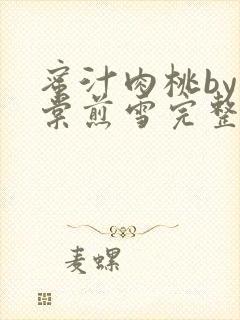 蜜汁肉桃by
棠煎雪完整
麦螺